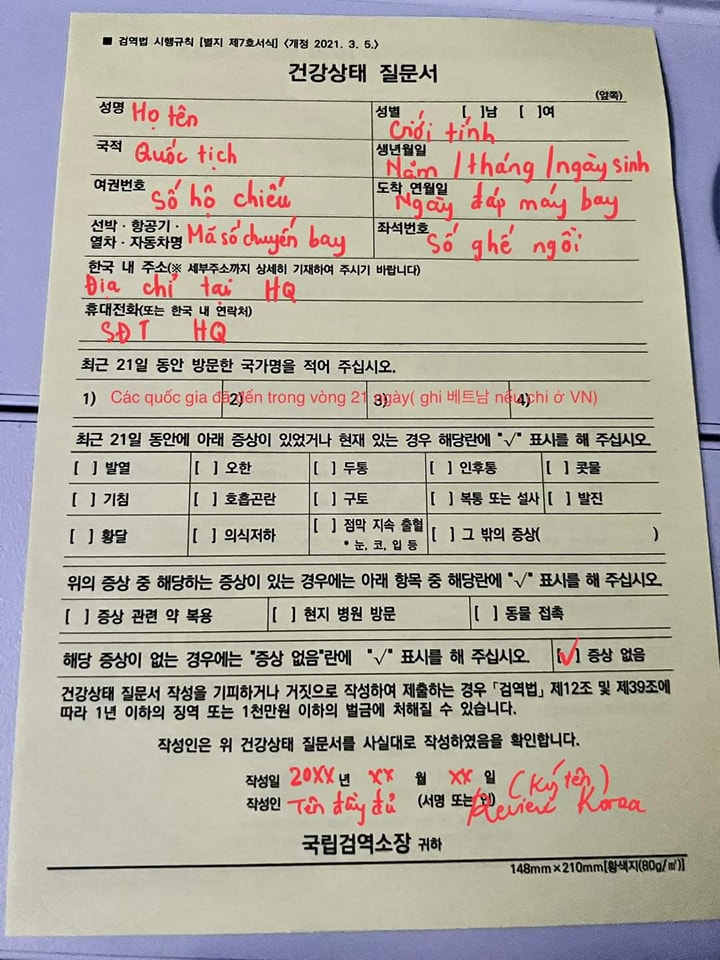 ■ 검역법 시행규칙 [별지 제7호서식] <개정 2021. 3. 5.>
건강상태 질문서
(앞쪽)
성명 Họ tên
성별 [ ]남 [ ]여
Giới tính
국적 Quốc tịch
생년월일
Năm /tháng /ngày sinh
여권번호 Số hộ chiếu
도착 연월일
Ngày đáp máy bay
선박·항공기·
열차·자동차명 Mã số chuyến bay
좌석번호 Số ghế ngồi
한국 내 주소(※ 세부주소까지 상세히 기재하여 주시기 바랍니다)
Địa chỉ tại HQ
휴대전화(또는 한국 내 연락처)
SĐT HQ
최근 21일 동안 방문한 국가명을 적어 주십시오.
1) 2) 3) 4)
Các quốc gia đã đến trong vòng 21 ngày( ghi 베트남 nếu chỉ ở VN)
최근 21일 동안에 아래 증상이 있었거나 현재 있는 경우 해당란에 "√" 표시를 해 주십시오.
[ ] 발열 [ ] 오한 [ ] 두통 [ ] 인후통 [ ] 콧물
[ ] 기침 [ ] 호흡곤란 [ ] 구토 [ ] 복통 또는 설사 [ ] 발진
[ ] 황달 [ ] 의식저하 [ ] 점막 지속 출혈 [ ] 그 밖의 증상( )
* 눈, 코, 입 등
위의 증상 중 해당하는 증상이 있는 경우에는 아래 항목 중 해당란에 "√" 표시를 해 주십시오.
[ ] 증상 관련 약 복용 [ ] 현지 병원 방문 [ ] 동물 접촉
해당 증상이 없는 경우에는 "증상 없음"란에 "√" 표시를 해 주십시오. [√] 증상 없음
건강상태 질문서 작성을 기피하거나 거짓으로 작성하여 제출하는 경우 「검역법」 제12조 및 제39조에
따라 1년 이하의 징역 또는 1천만원 이하의 벌금에 처해질 수 있습니다.
작성인은 위 건강상태 질문서를 사실대로 작성하였음을 확인합니다.
작성일 20XX 년 XX 월 XX 일 (Ký tên)
작성인 Tên đầy đủ (서명 또는 인) Review Korea
국립검역소장 귀하
148mm×210mm[황색지(80g/㎡)]